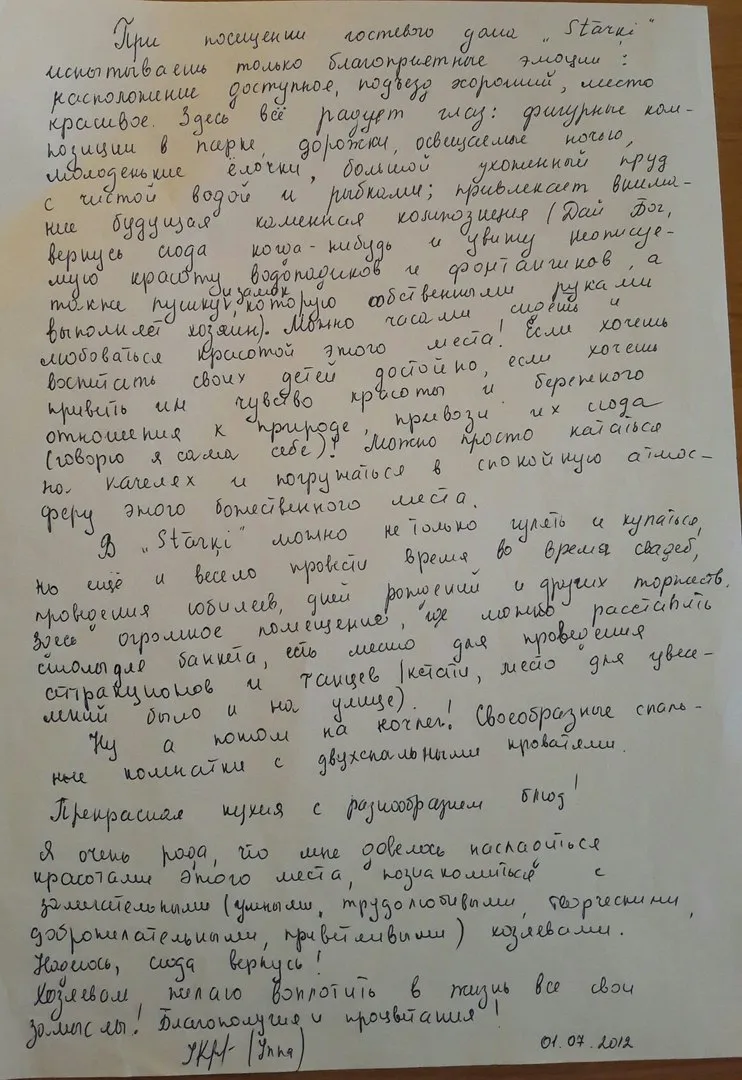 При посещении гостевого дома „Stārķi"
испытываешь только благоприятные эмоции:
расположение доступное, подъезд хороший, место
красивое. Здесь всё радует глаз: фигурные ком-
позиции в парке, дорожки, освещаемые ночью,
молоденькие ёлочки, большой ухоженный пруд
с чистой водой и рыбками; привлекает внима-
ние будущая каменная композиция (Дай Бог,
вернусь сюда когда-нибудь и увижу неописуе-
мую красоту водопадиков и фонтанчиков, а
также пушку и замок, которую собственными руками
выполняет хозяин). Можно часами сидеть и
любоваться красотой этого места! Если хочешь
воспитать своих детей достойно, если хочешь
привить им чувство красоты и бережного
отношения к природе, привози их сюда
(говорю я сама себе)! Можно просто кататься
на качелях и погружаться в спокойную атмос-
феру этого божественного места.
В „Stārķi" можно не только гулять и купаться,
но ещё и весело провести время во время свадеб,
проведения юбилеев, дней рождений и других торжеств.
Здесь огромное помещение, где можно расставить
столы для банкета, есть место для проведения
аттракционов и танцев (кстати, место для увесе-
лений было и на улице).
Ну а потом на ночлег! Своеобразные спаль-
ные комнатки с двухспальными кроватями.
Прекрасная кухня с разнообразием блюд!
Я очень рада, что мне довелось насладиться
красотами этого места, познакомиться с
замечательными (умными, трудолюбивыми, творческими,
доброжелательными, приветливыми) хозяевами.
Надеюсь, сюда вернусь!
Хозяевам желаю воплотить в жизнь все свои
замыслы! Благополучия и процветания!
(Inna) 01.07.2012